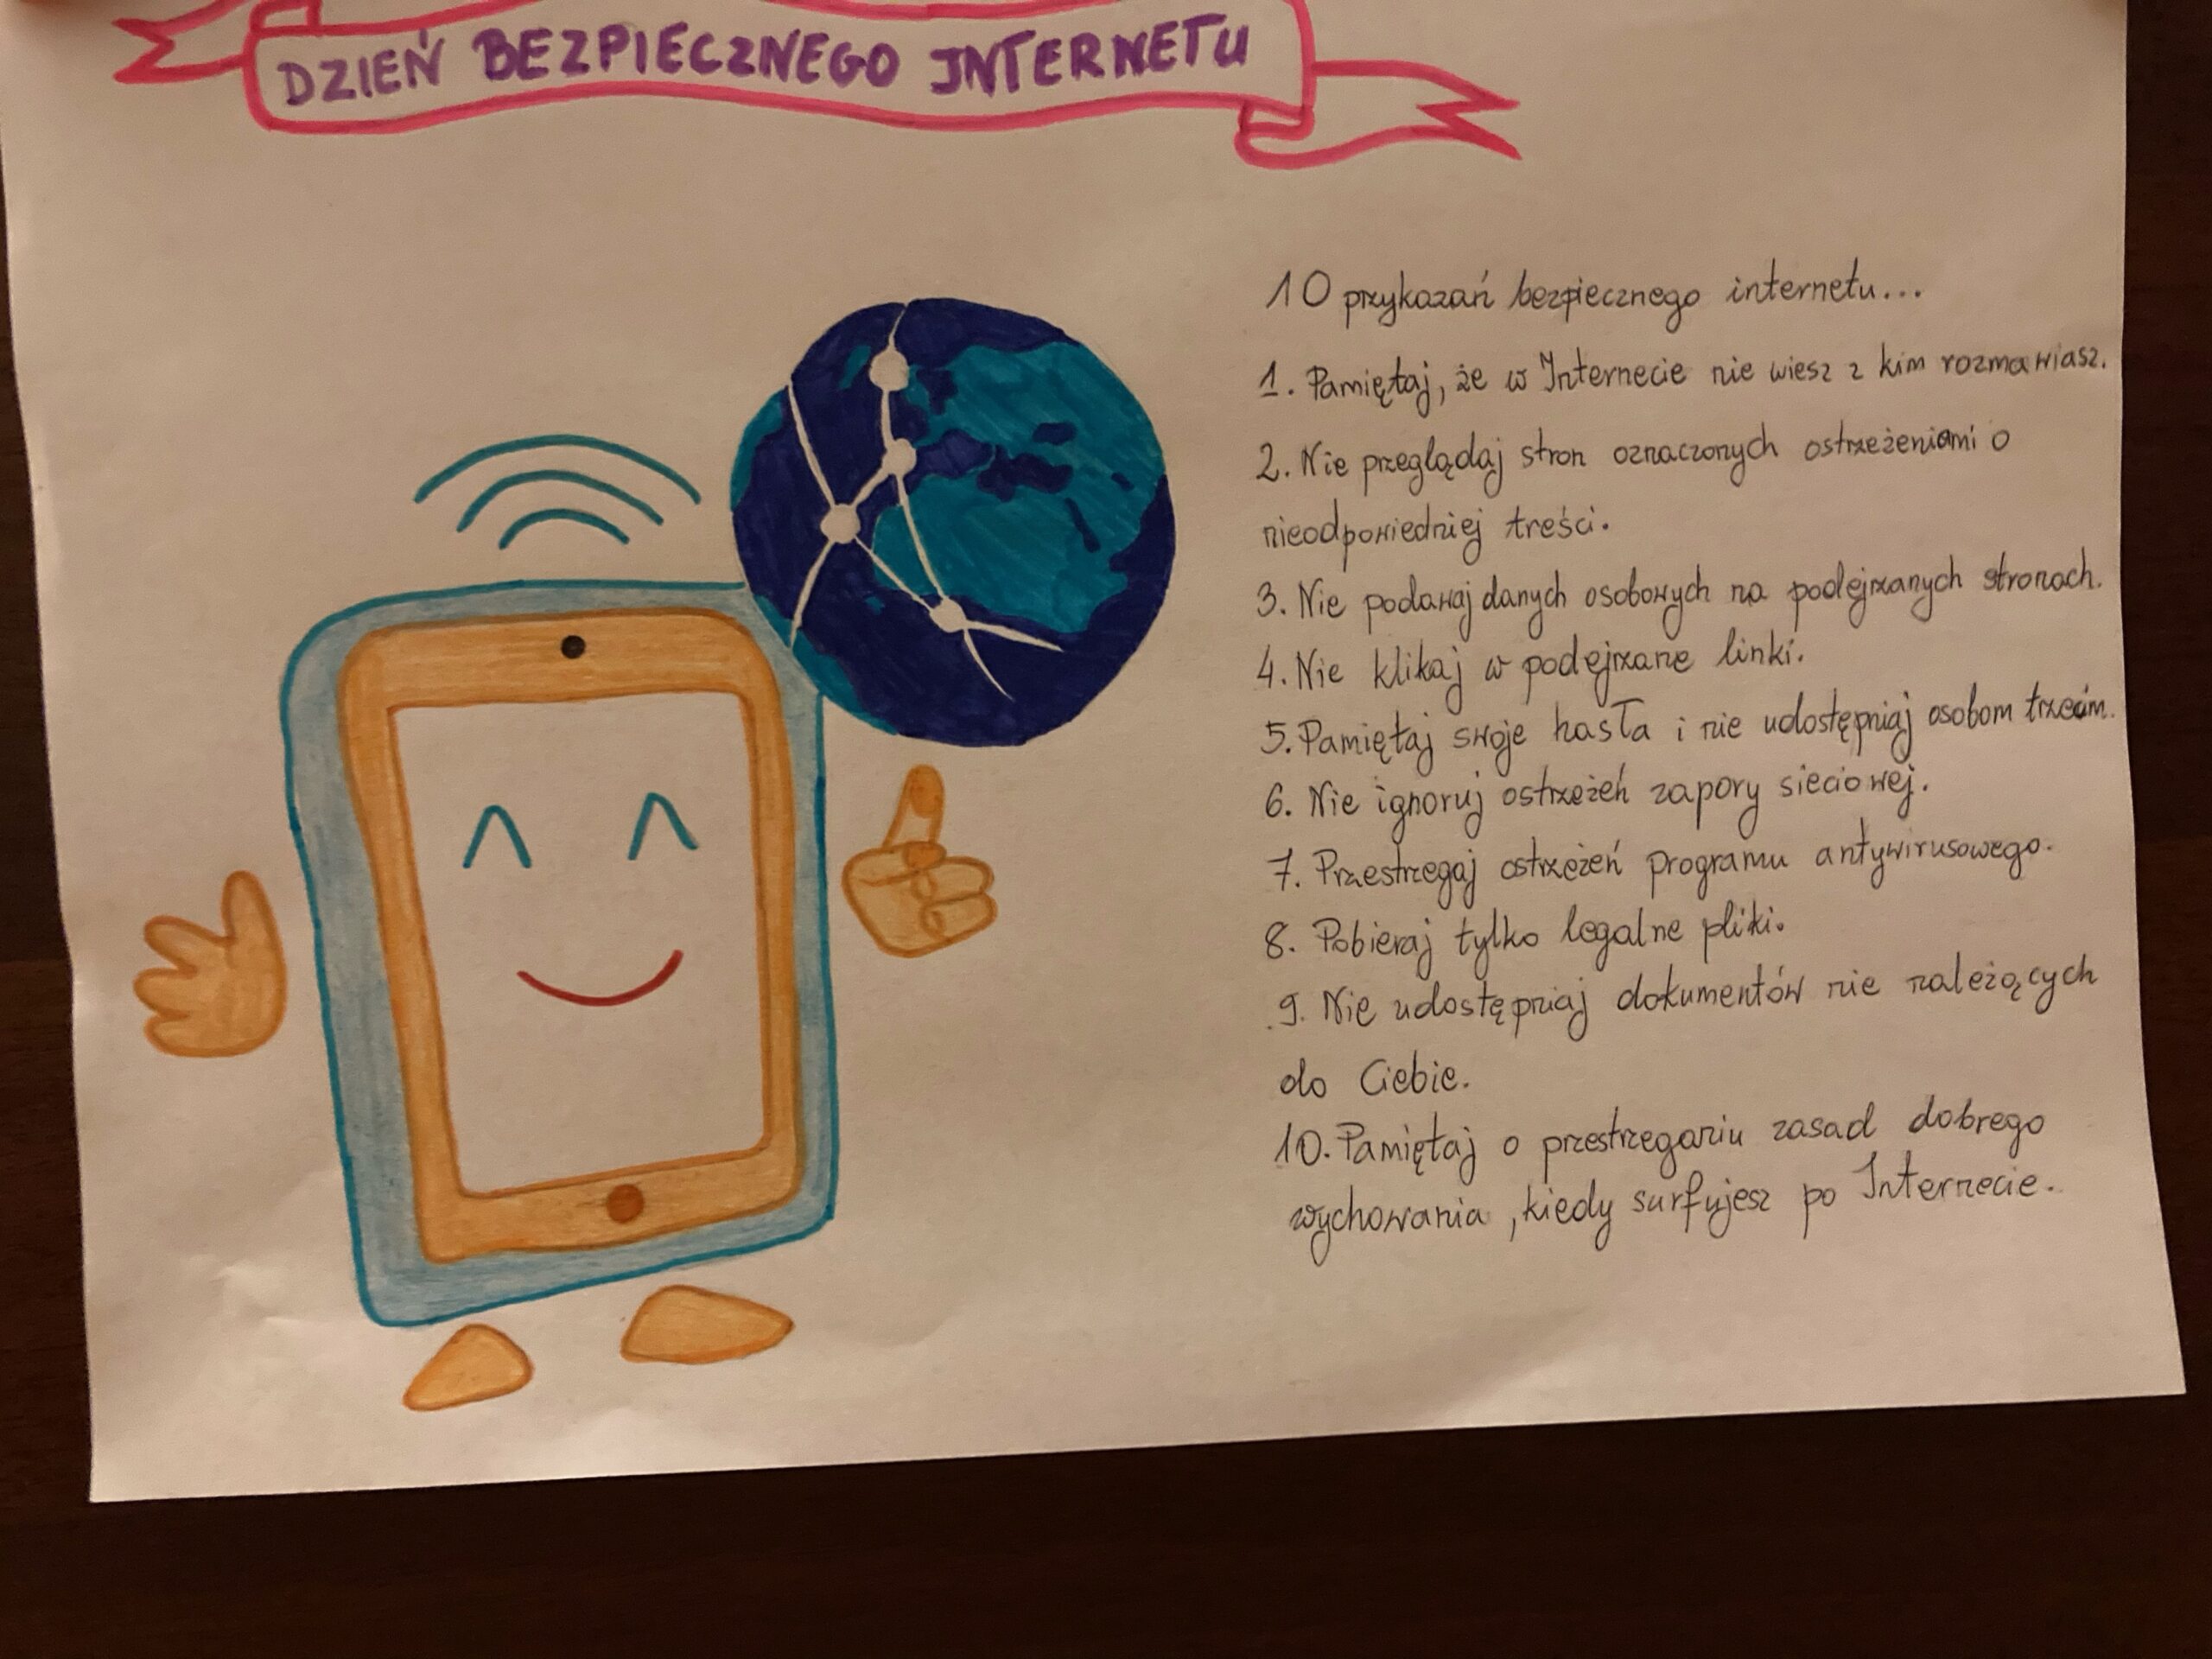 DZIEŃ BEZPIECZNEGO INTERNETU
10 przykazań bezpiecznego internetu...
1. Pamiętaj, że w Internecie nie wiesz z kim rozmawiasz.
2. Nie przeglądaj stron oznaczonych ostrzeżeniami o
nieodpowiedniej treści.
3. Nie podawaj danych osobowych na podejrzanych stronach.
4. Nie klikaj w podejrzane linki.
5. Pamiętaj swoje hasła i nie udostępniaj osobom trzecim.
6. Nie ignoruj ostrzeżeń zapory sieciowej.
7. Przestrzegaj ostrzeżeń programu antywirusowego.
8. Pobieraj tylko legalne pliki.
9. Nie udostępniaj dokumentów nie należących
do Ciebie.
10. Pamiętaj o przestrzeganiu zasad dobrego
wychowania, kiedy surfujesz po Internecie.